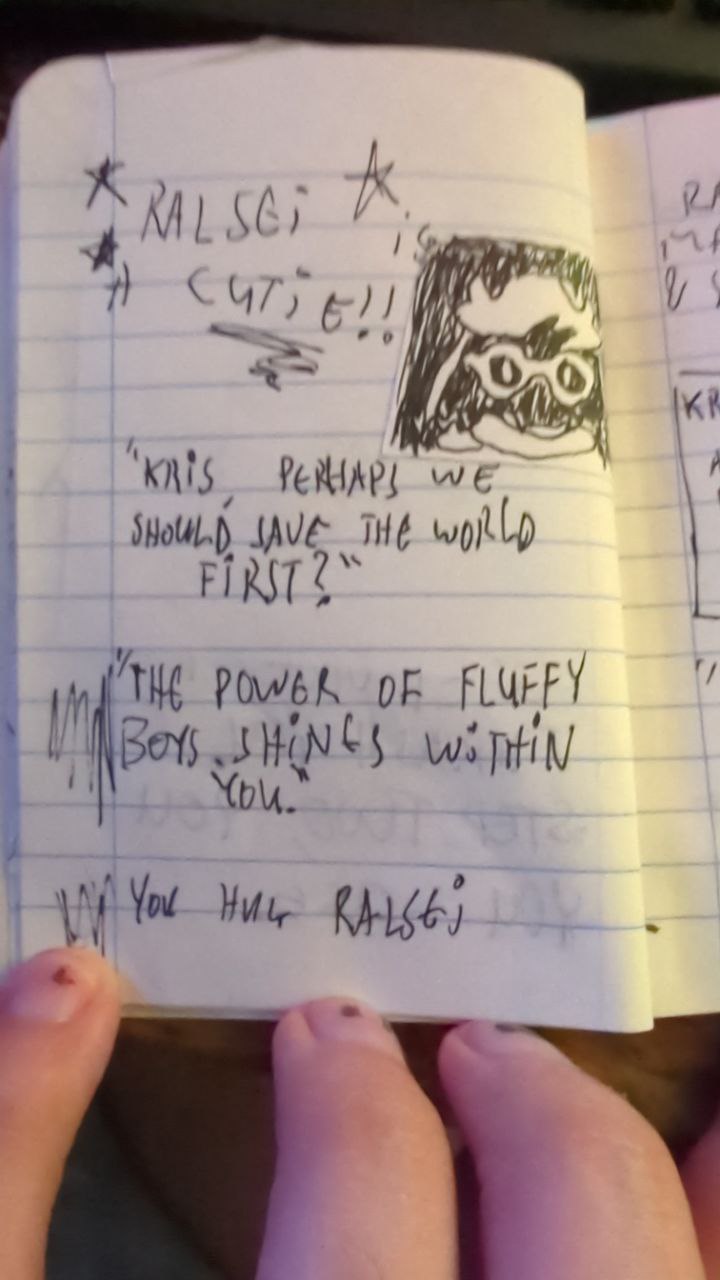 RALSEi is
A CUTiE!!
"KRiS, PERHAPS WE
SHOULD SAVE THE WORLD
FiRST?"
"THE POWER OF FLUFFY
BOYS SHiNES WiTHiN
YOU."
YOU HUG RALSEi
RA
MA
& S
KR
A